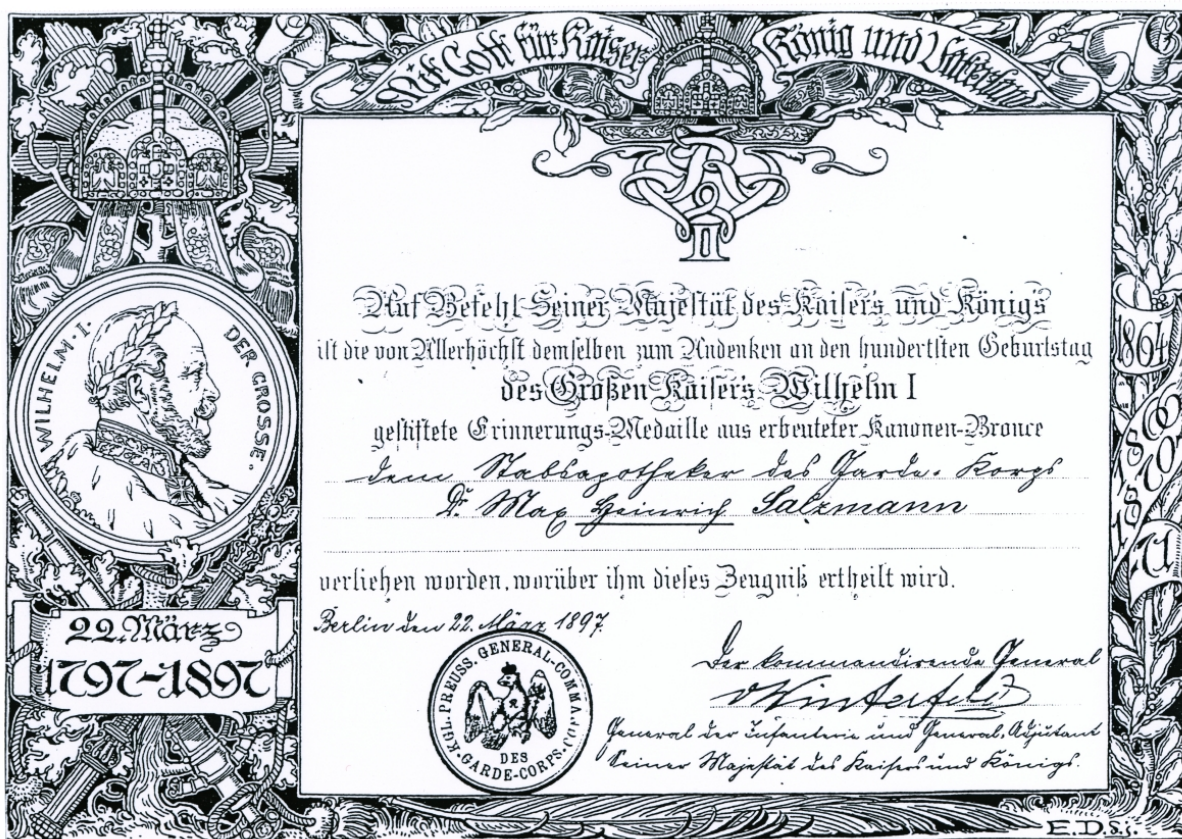 Mit Gott für Kaiser König und Vaterland
WILHELM · I · DER GROSSE.
22. März
1797-1897
Auf Befehl Seiner Majestät des Kaisers und Königs
ist die von Allerhöchst demselben zum Andenken an den hundertsten Geburtstag
des Großen Kaisers Wilhelm I
gestiftete Erinnerungs-Medaille aus erbeuteter Kanonen-Bronce
dem Stabsapotheker des Garde-Korps
Dr. Max Heinrich Salzmann
verliehen worden, worüber ihm dieses Zeugniß ertheilt wird.
Berlin den 22. März 1897.
KGL. PREUSS. GENERAL-COMMANDO
DES
GARDE-CORPS.
Der kommandirende General
v Winterfeld
General der Infanterie und General-Adjutant
Seiner Majestät des Kaisers und Königs.
1864
E.D.S.